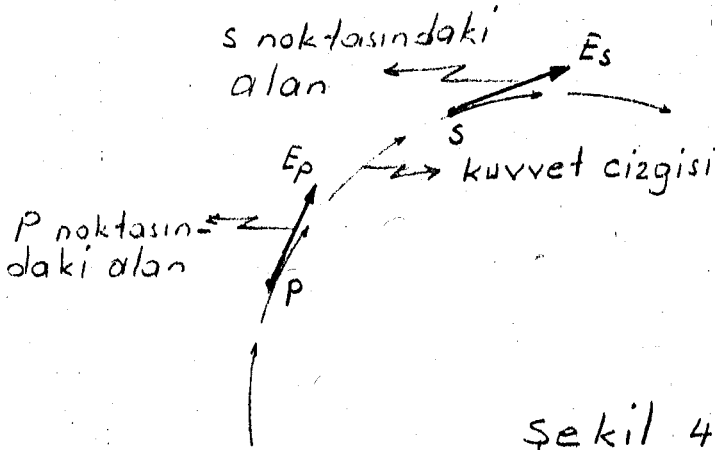 s noktasındaki
alan
Es
s
kuvvet cizgisi
Ep
P noktasın-
daki alan
P
Şekil 4